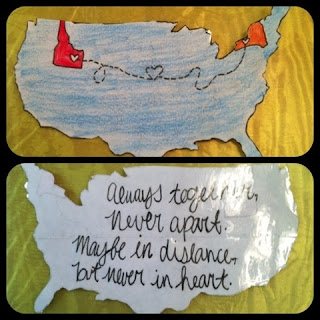 Always together,
Never apart.
Maybe in distance,
but never in heart.